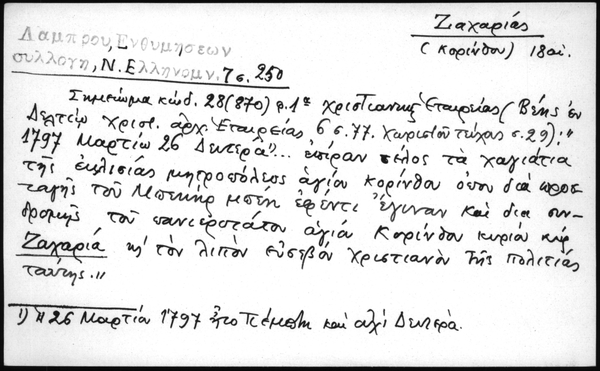 Ζαχαρίας
(Κορίνθου) 18αι.
Λαμπρου, Ενθυμήσεων
συλλογη, Ν. Ελληνομν. 7 σ. 250
Σημείωμα κώδ. 28(870) φ. 1α Χριστιανικῆς Ἑταιρείας (Βέης ἐν
Δελτίῳ χριστ. ἀρχ. Ἑταιρείας 6 σ. 77. Χωριστοῦ τεύχος σ. 29): "
1797 Μαρτίω 26 Δευτέρᾳ 1)... ἐπίραν τέλος τὰ χαγιάτια
τῆς ἐκλισίας μητροπόλεος ἁγίου Κορίνθου ὁπου διὰ προσ
ταγῆς τοῦ Μπεκὴρ μπέη ἐφέντι ἔγιναν καὶ δια συν-
δρομῆς τοῦ πανιεροτάτου ἁγίου Κορίνθου κυρίου κὺρ
Ζαχαρία κὴ τὸν λιπὸν εὐσεβὸν χριστιανὸν τῆς πολιτίας
ταύτης."
1) Ἡ 26 Μαρτίου 1797 ἦτο Πέμπτη καὶ οὐχὶ Δευτέρα.